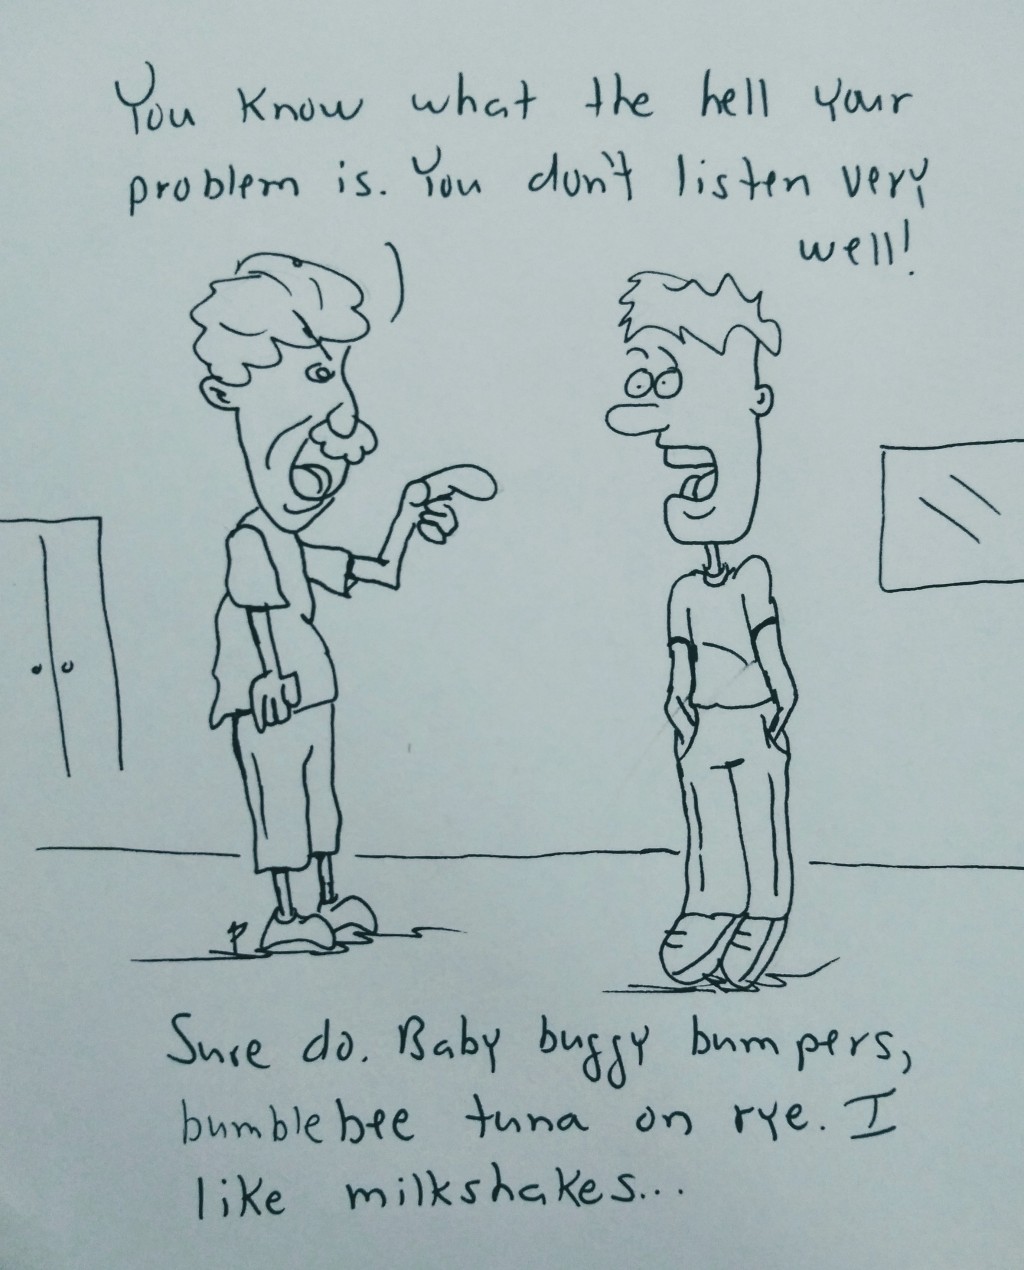 You know what the hell your
problem is. You don't listen very
well!
Sure do. Baby buggy bumpers,
bumblebee tuna on rye. I
like milkshakes...